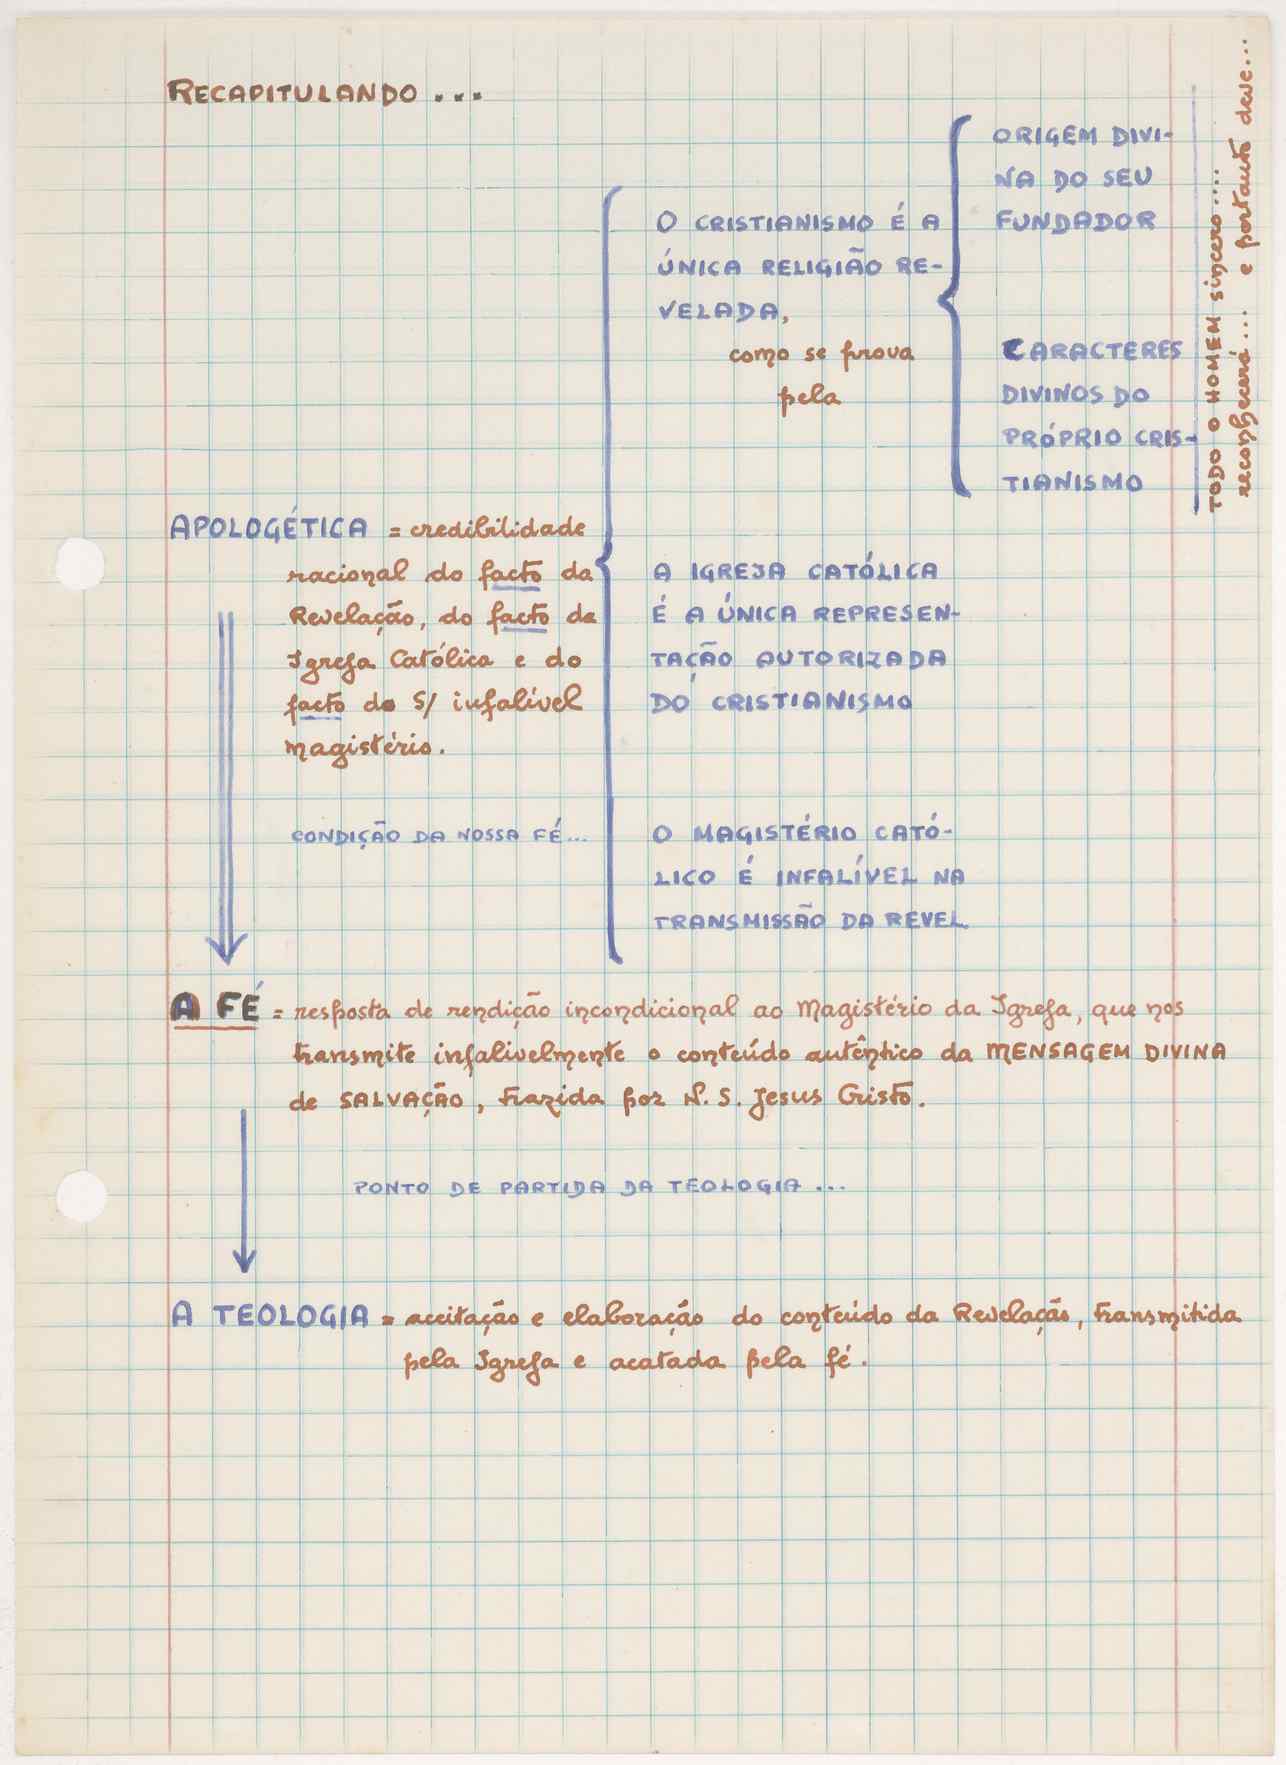 RECAPITULANDO ...
APOLOGÉTICA = credibilidade
racional do facto da
Revelação, do facto da
Igreja Católica e do
facto do S/ infalível
magistério.
CONDIÇÃO DA NOSSA FÉ...
O CRISTIANISMO É A
ÚNICA RELIGIÃO RE-
VELADA,
como se prova
pela
ORIGEM DIVI-
NA DO SEU
FUNDADOR
CARACTERES
DIVINOS DO
PRÓPRIO CRIS-
TIANISMO
A IGREJA CATÓLICA
É A ÚNICA REPRESEN-
TAÇÃO AUTORIZADA
DO CRISTIANISMO
O MAGISTÉRIO CATÓ-
LICO É INFALÍVEL NA
TRANSMISSÃO DA REVEL.
TODO O HOMEM sincero....
reconhecerá... e portanto deve...
A FÉ = resposta de rendição incondicional ao Magistério da Igreja, que nos
transmite infalivelmente o conteúdo autêntico da MENSAGEM DIVINA
de SALVAÇÃO, trazida por N. S. Jesus Cristo.
PONTO DE PARTIDA DA TEOLOGIA ...
A TEOLOGIA = aceitação e elaboração do conteúdo da Revelação, transmitida
pela Igreja e acatada pela fé.